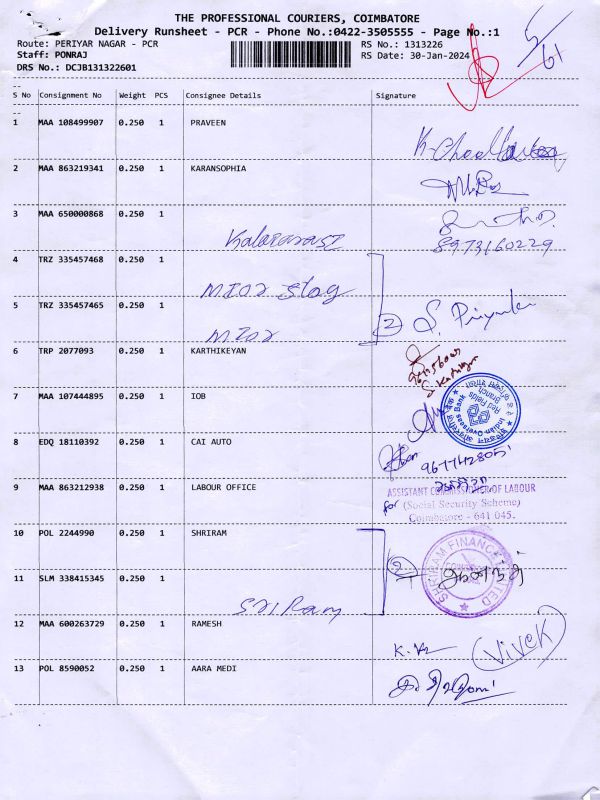 THE PROFESSIONAL COURIERS, COIMBATORE
Delivery Runsheet - PCR - Phone No.:0422-3505555 - Page No.:1
Route: PERIYAR NAGAR - PCR RS No.: 1313226
Staff: PONRAJ RS Date: 30-Jan-2024
DRS No.: DCJB131322601
5/61
S No Consignment No Weight PCS Consignee Details Signature
1 MAA 108499907 0.250 1 PRAVEEN
2 MAA 863219341 0.250 1 KARANSOPHIA
3 MAA 650000868 0.250 1
8973160229
4 TRZ 335457468 0.250 1
5 TRZ 335457465 0.250 1
2 S. Priyanka
6 TRP 2077093 0.250 1 KARTHIKEYAN
7 MAA 107444895 0.250 1 IOB
Indian Overseas Bank
Red Fields
Branch
8 EDQ 18110392 0.250 1 CAI AUTO
9 MAA 863212938 0.250 1 LABOUR OFFICE
ASSISTANT COMMISSIONER OF LABOUR
for (Social Security Scheme)
Coimbatore - 641 045.
10 POL 2244990 0.250 1 SHRIRAM
SHRIRAM FINANCE LIMITED
11 SLM 338415345 0.250 1
Sri Ram
12 MAA 600263729 0.250 1 RAMESH
(Vivek)
13 POL 8590052 0.250 1 AARA MEDI